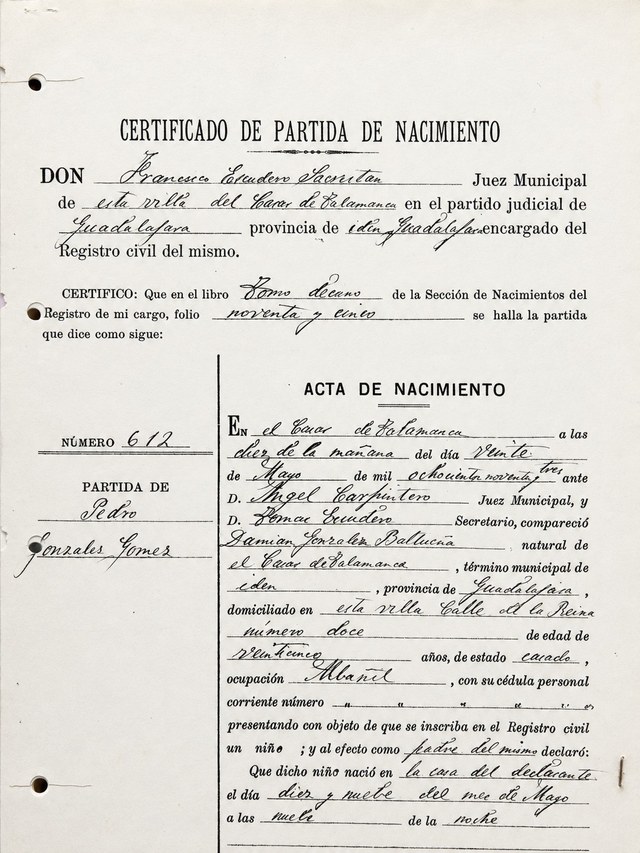 CERTIFICADO DE PARTIDA DE NACIMIENTO
DON Francisco Escudero Sacristan Juez Municipal
de esta villa del Casar de Talamanca en el partido judicial de
Guadalajara provincia de iden Guadalajara encargado del
Registro civil del mismo.
CERTIFICO: Que en el libro Tomo décimo de la Sección de Nacimientos del
Registro de mi cargo, folio noventa y cinco se halla la partida
que dice como sigue:
NÚMERO 612
PARTIDA DE
Pedro
Gonzales Gomez
ACTA DE NACIMIENTO
EN el Casar de Talamanca a las
diez de la mañana del día veinte
de Mayo de mil ochocientos noventa y tres ante
D. Angel Carpintero Juez Municipal, y
D. Tomas Secretario, compareció
Damian Gonzalez natural de
el Casar de Talamanca, término municipal de
iden, provincia de Guadalajara,
domiciliado en esta villa Calle de la Reina
número doce de edad de
veinticinco años, de estado casado,
ocupación Albañil, con su cédula personal
corriente número " " " " "
presentando con objeto de que se inscriba en el Registro civil
un niño; y al efecto como padre del mismo declaró:
Que dicho niño nació en la casa del declarante
el día diez y nuebe del mes de Mayo
a las nuebe de la noche